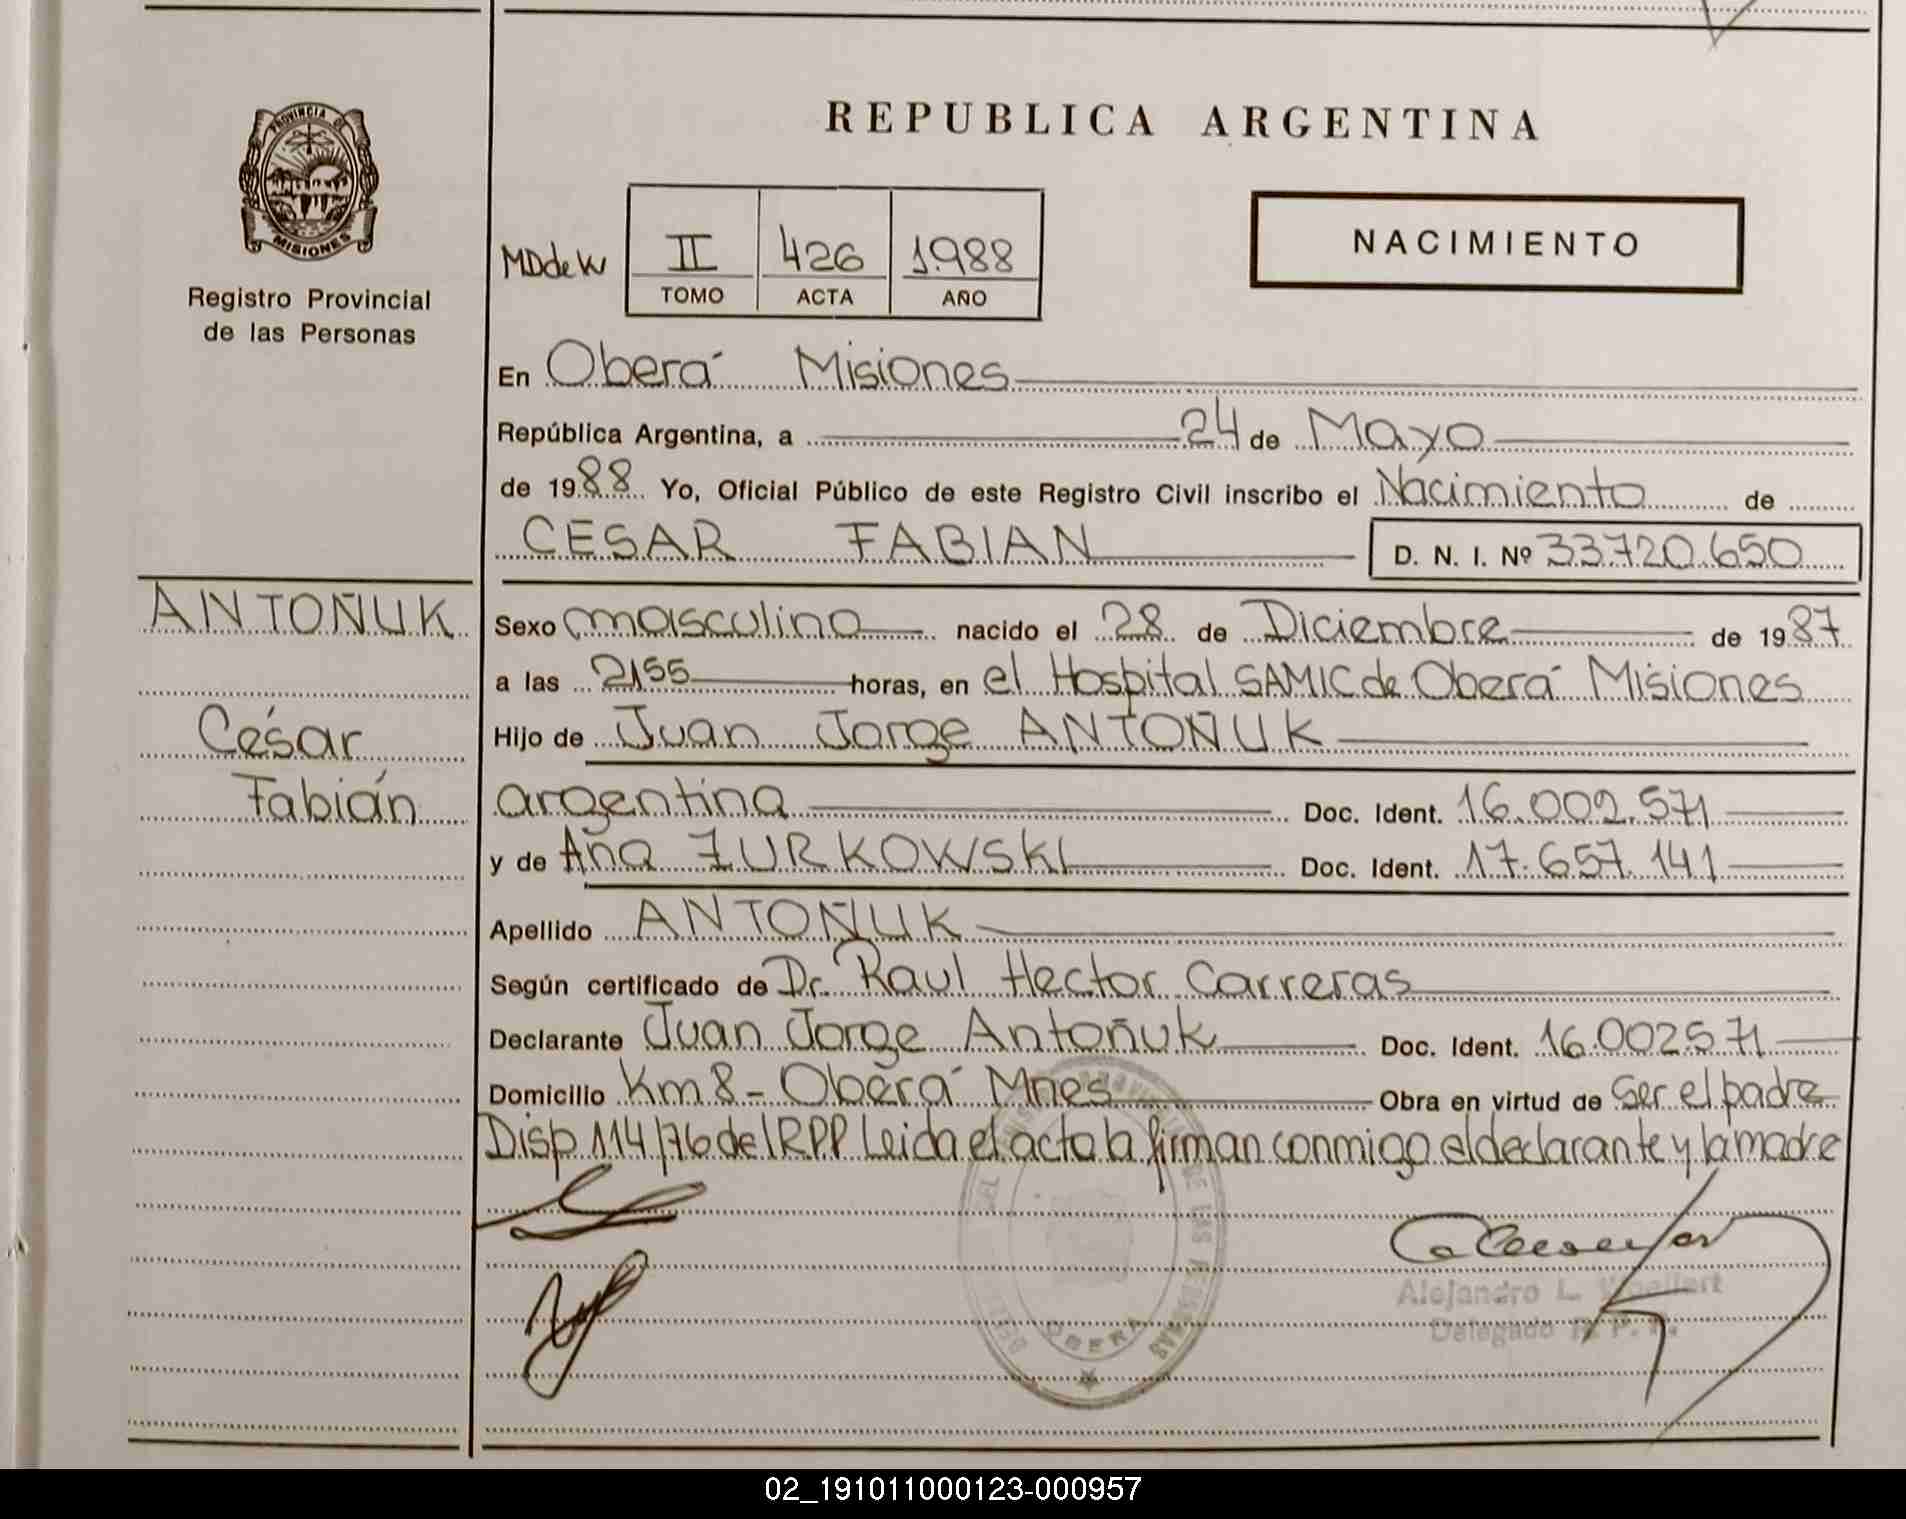 REPUBLICA ARGENTINA
PROVINCIA DE
MISIONES
Registro Provincial
de las Personas
MDdeW
II 426 1.988
TOMO ACTA AÑO
NACIMIENTO
En Oberá Misiones
República Argentina, a 24 de Mayo
de 1988 Yo, Oficial Público de este Registro Civil inscribo el Nacimiento de
CESAR FABIAN D. N. I. Nº 33.720.650
ANTOÑUK
César
Fabián
Sexo masculino nacido el 28 de Diciembre de 1987
a las 2155 horas, en el Hospital SAMIC de Oberá Misiones
Hijo de Juan Jorge ANTOÑUK
argentina Doc. Ident. 16.002.571
y de Aña ZURKOWSKI Doc. Ident. 17.657.141
Apellido ANTOÑUK
Según certificado de Dr. Raul Hector Carreras
Declarante Juan Jorge Antoñuk Doc. Ident. 16.002571
Domicilio Km 8 - Oberá Mnes Obra en virtud de ser el padre
Disp 114/76 del RPP Leida el acta la firman conmigo el declarante y la madre
DE LAS PERSONAS
OBERA
Alejandro L.
Delegado R. P. P.
02_191011000123-000957